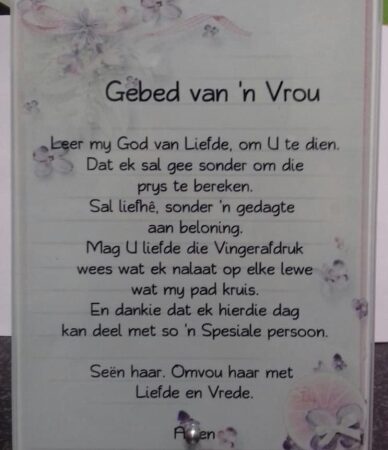 Gebed van 'n Vrou
Leer my God van Liefde, om U te dien.
Dat ek sal gee sonder om die
prys te bereken.
Sal liefhê, sonder 'n gedagte
aan beloning.
Mag U liefde die Vingerafdruk
wees wat ek nalaat op elke lewe
wat my pad kruis.
En dankie dat ek hierdie dag
kan deel met so 'n Spesiale persoon.
Seën haar. Omvou haar met
Liefde en Vrede.